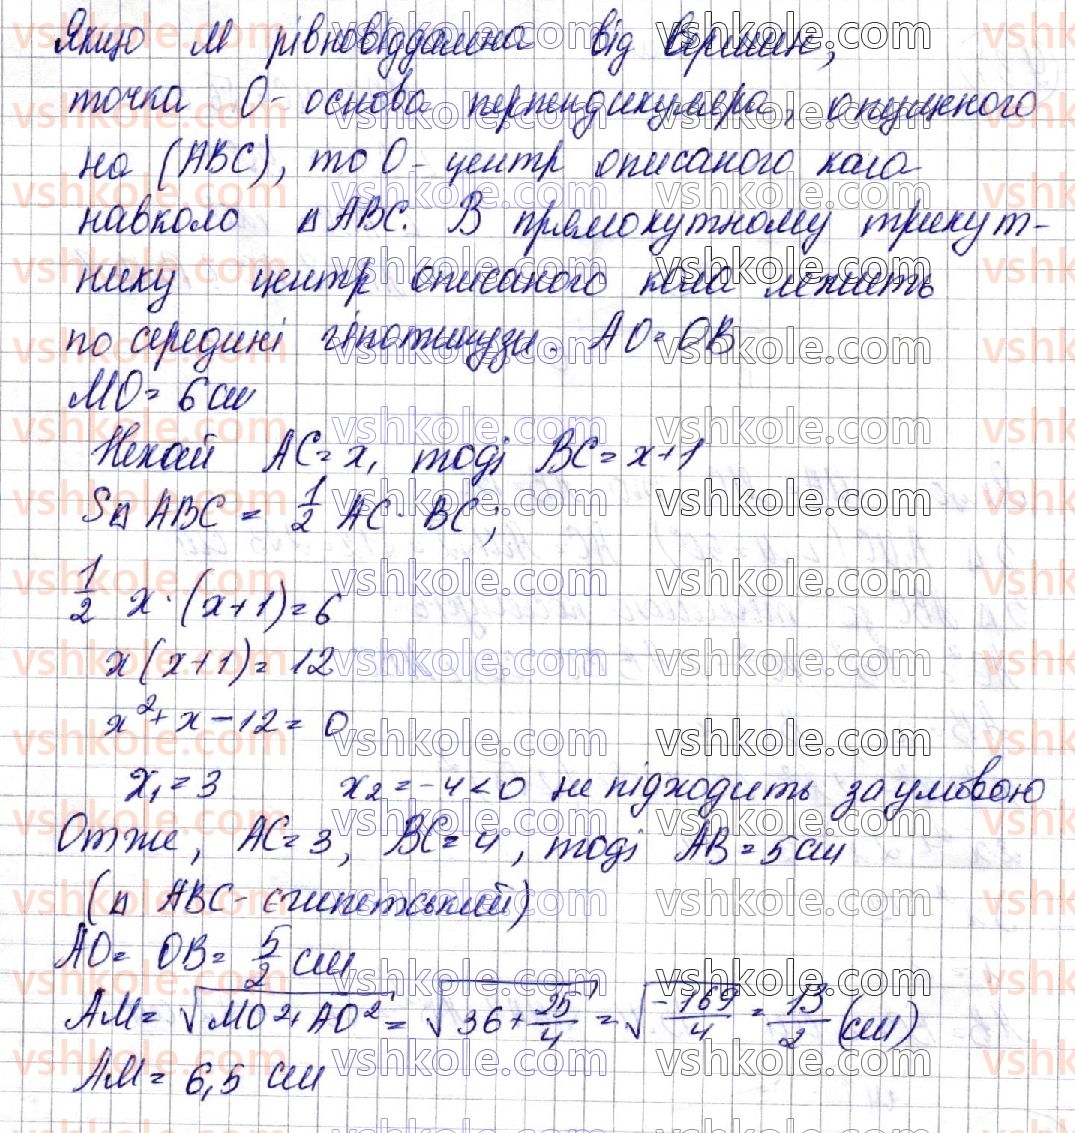 Якщо M рівновіддалена від вершин,
точка O - основа перпендикуляра, опущеного
на (ABC), то O - центр описаного кола
навколо △ ABC. В прямокутному трикут-
нику центр описаного кола лежить
по середині гіпотинузи. AO = OB
MO = 6 см
Нехай AC = x, тоді BC = x+1
S△ ABC = 1/2 AC · BC;
1/2 x · (x+1) = 6
x(x+1) = 12
x² + x - 12 = 0
x₁ = 3 x₂ = -4 < 0 не підходить за умовою
Отже, AC = 3, BC = 4, тоді AB = 5 см
(△ ABC - єгипетський)
AO = OB = 5/2 см
AM = √(MO² + AO²) = √(36 + 25/4) = √(-169/4) = 13/2 (см)
AM = 6,5 см
vshkole.com